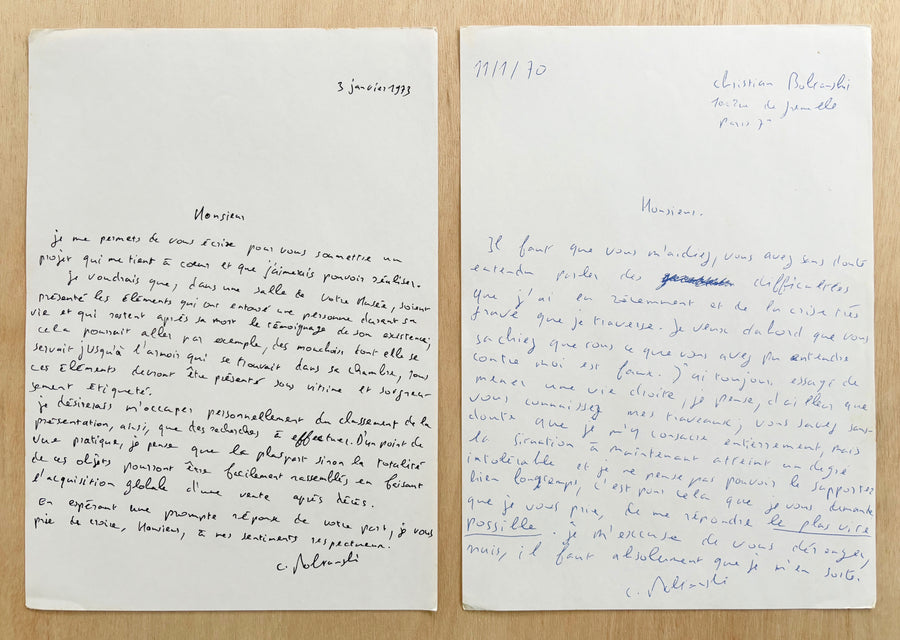 3 janvier 1973
Monsieur
je me permets de vous écrire pour vous soumettre un
projet qui me tient à cœur et que j'aimerais pouvoir réaliser.
je voudrais que, dans une salle de votre Musée, soient
présenté les Éléments qui ont entouré une personne durant sa
vie et qui restent après sa mort le témoignage de son existence;
cela pourrait aller par exemple, des mouchoirs dont elle se
servait jusqu'à l'armoir qui se trouvait dans sa chambre, tous
ces Éléments devront être présenté sous vitrine et soigneu-
sement étiqueté.
je désirerais m'occuper personnellement du classement de la
présentation, ainsi, que des recherches à effectuer. D'un point de
vue pratique, je pense que la pluspart sinon la totalité
de ces objets pourront être facilement rassemblés en faisant
l'acquisition globale d'une vente après décès.
en espérant une prompte réponse de votre part, je vous
prie de croire, Monsieur, à mes sentiments respectueux.
C. Boltanski
11/1/70
Christian Boltanski
rue de grenelle
Paris 7e
Monsieur.
Il faut que vous m'aidiez, vous avez sans doute
entendu parler des difficultées
que j'ai eu récemment et de la crise très
grave que je traverse. Je veux dabord que vous
sachiez que tous ce que vous avez pu entendre
contre moi est faux. J'ai toujours essayé de
mener une vie droite, je pense, d'ailleur que
vous connaissez mes traveaux; vous savez sans-
doute que je m'y consacre entièrement, mais
la situation à maintenant atteint un degré
intolérable et je ne pense pas pouvoir le supporter
bien longtemps, c'est pour cela que je vous demande
que je vous prie, de me répondre le plus vite
possible. je m'excuse de vous déranger,
mais, il faut absolument que je m'en sorte.
C. Boltanski